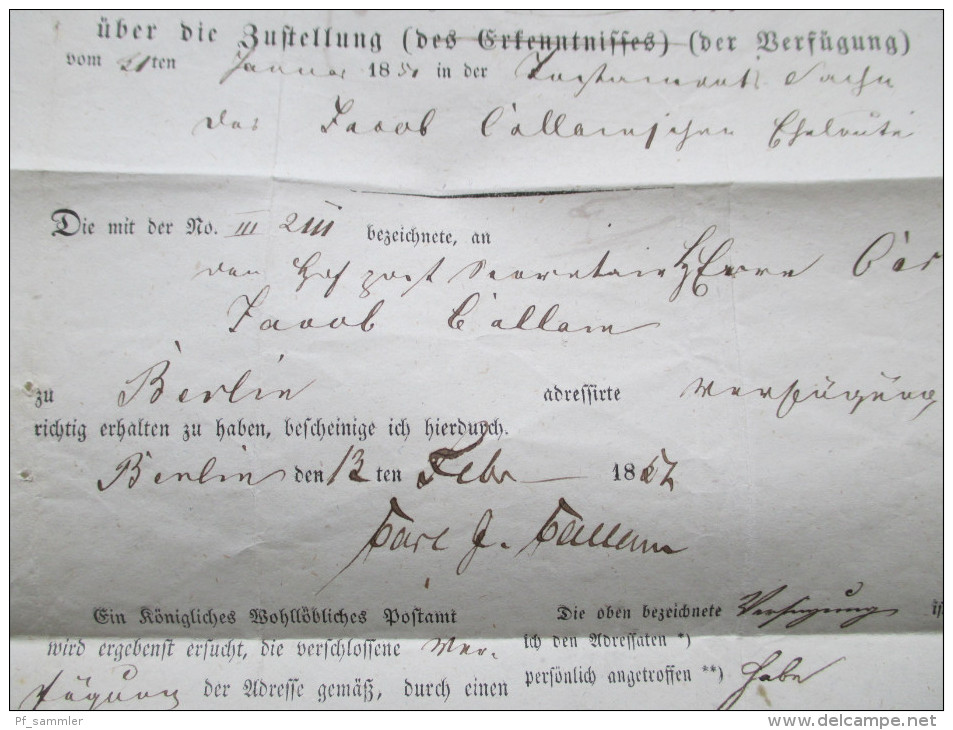 über die Zustellung (des Erkenntnisses) (der Verfügung)
vom 21ten Januar 1851 in der Testaments Sache
der Jacob Callamschen Eheleute
Die mit der No. III bezeichnete, an
den Hofpost Secretair Herrn
Jacob Callam
zu Berlin adressirte Verfügung
richtig erhalten zu haben, bescheinige ich hierdurch.
Berlin den 12ten Febr 1852
Carl J. Callam
Ein Königliches Wohllöbliches Postamt
wird ergebenst ersucht, die verschlossene Ver-
fügung der Adresse gemäß, durch einen
Die oben bezeichnete Verfügung
ich den Adressaten *)
persönlich angetroffen **) habe
Pf_sammler
www.delcampe.net